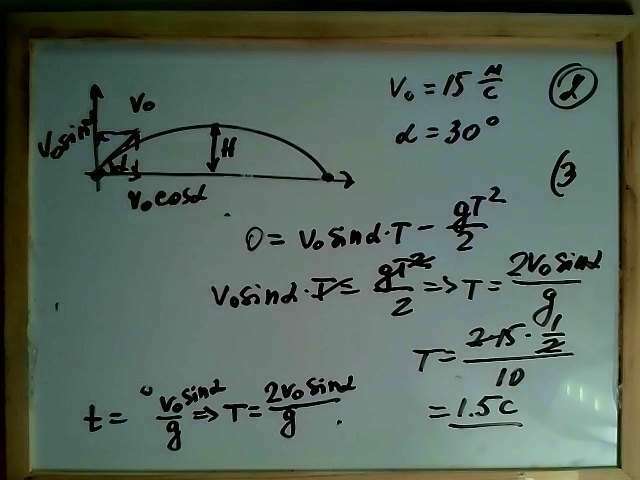 V₀ = 15 м/с
②
α = 30°
(3
V₀
V₀ sinα
α
H
V₀ cosα
0 = V₀ sinα·T − gT²/2
V₀ sinα·T = gT²/2 => T = 2V₀ sinα/g
T = 2·15·1/2 / 10
= 1.5 с
t = V₀ sinα/g => T = 2V₀ sinα/g.